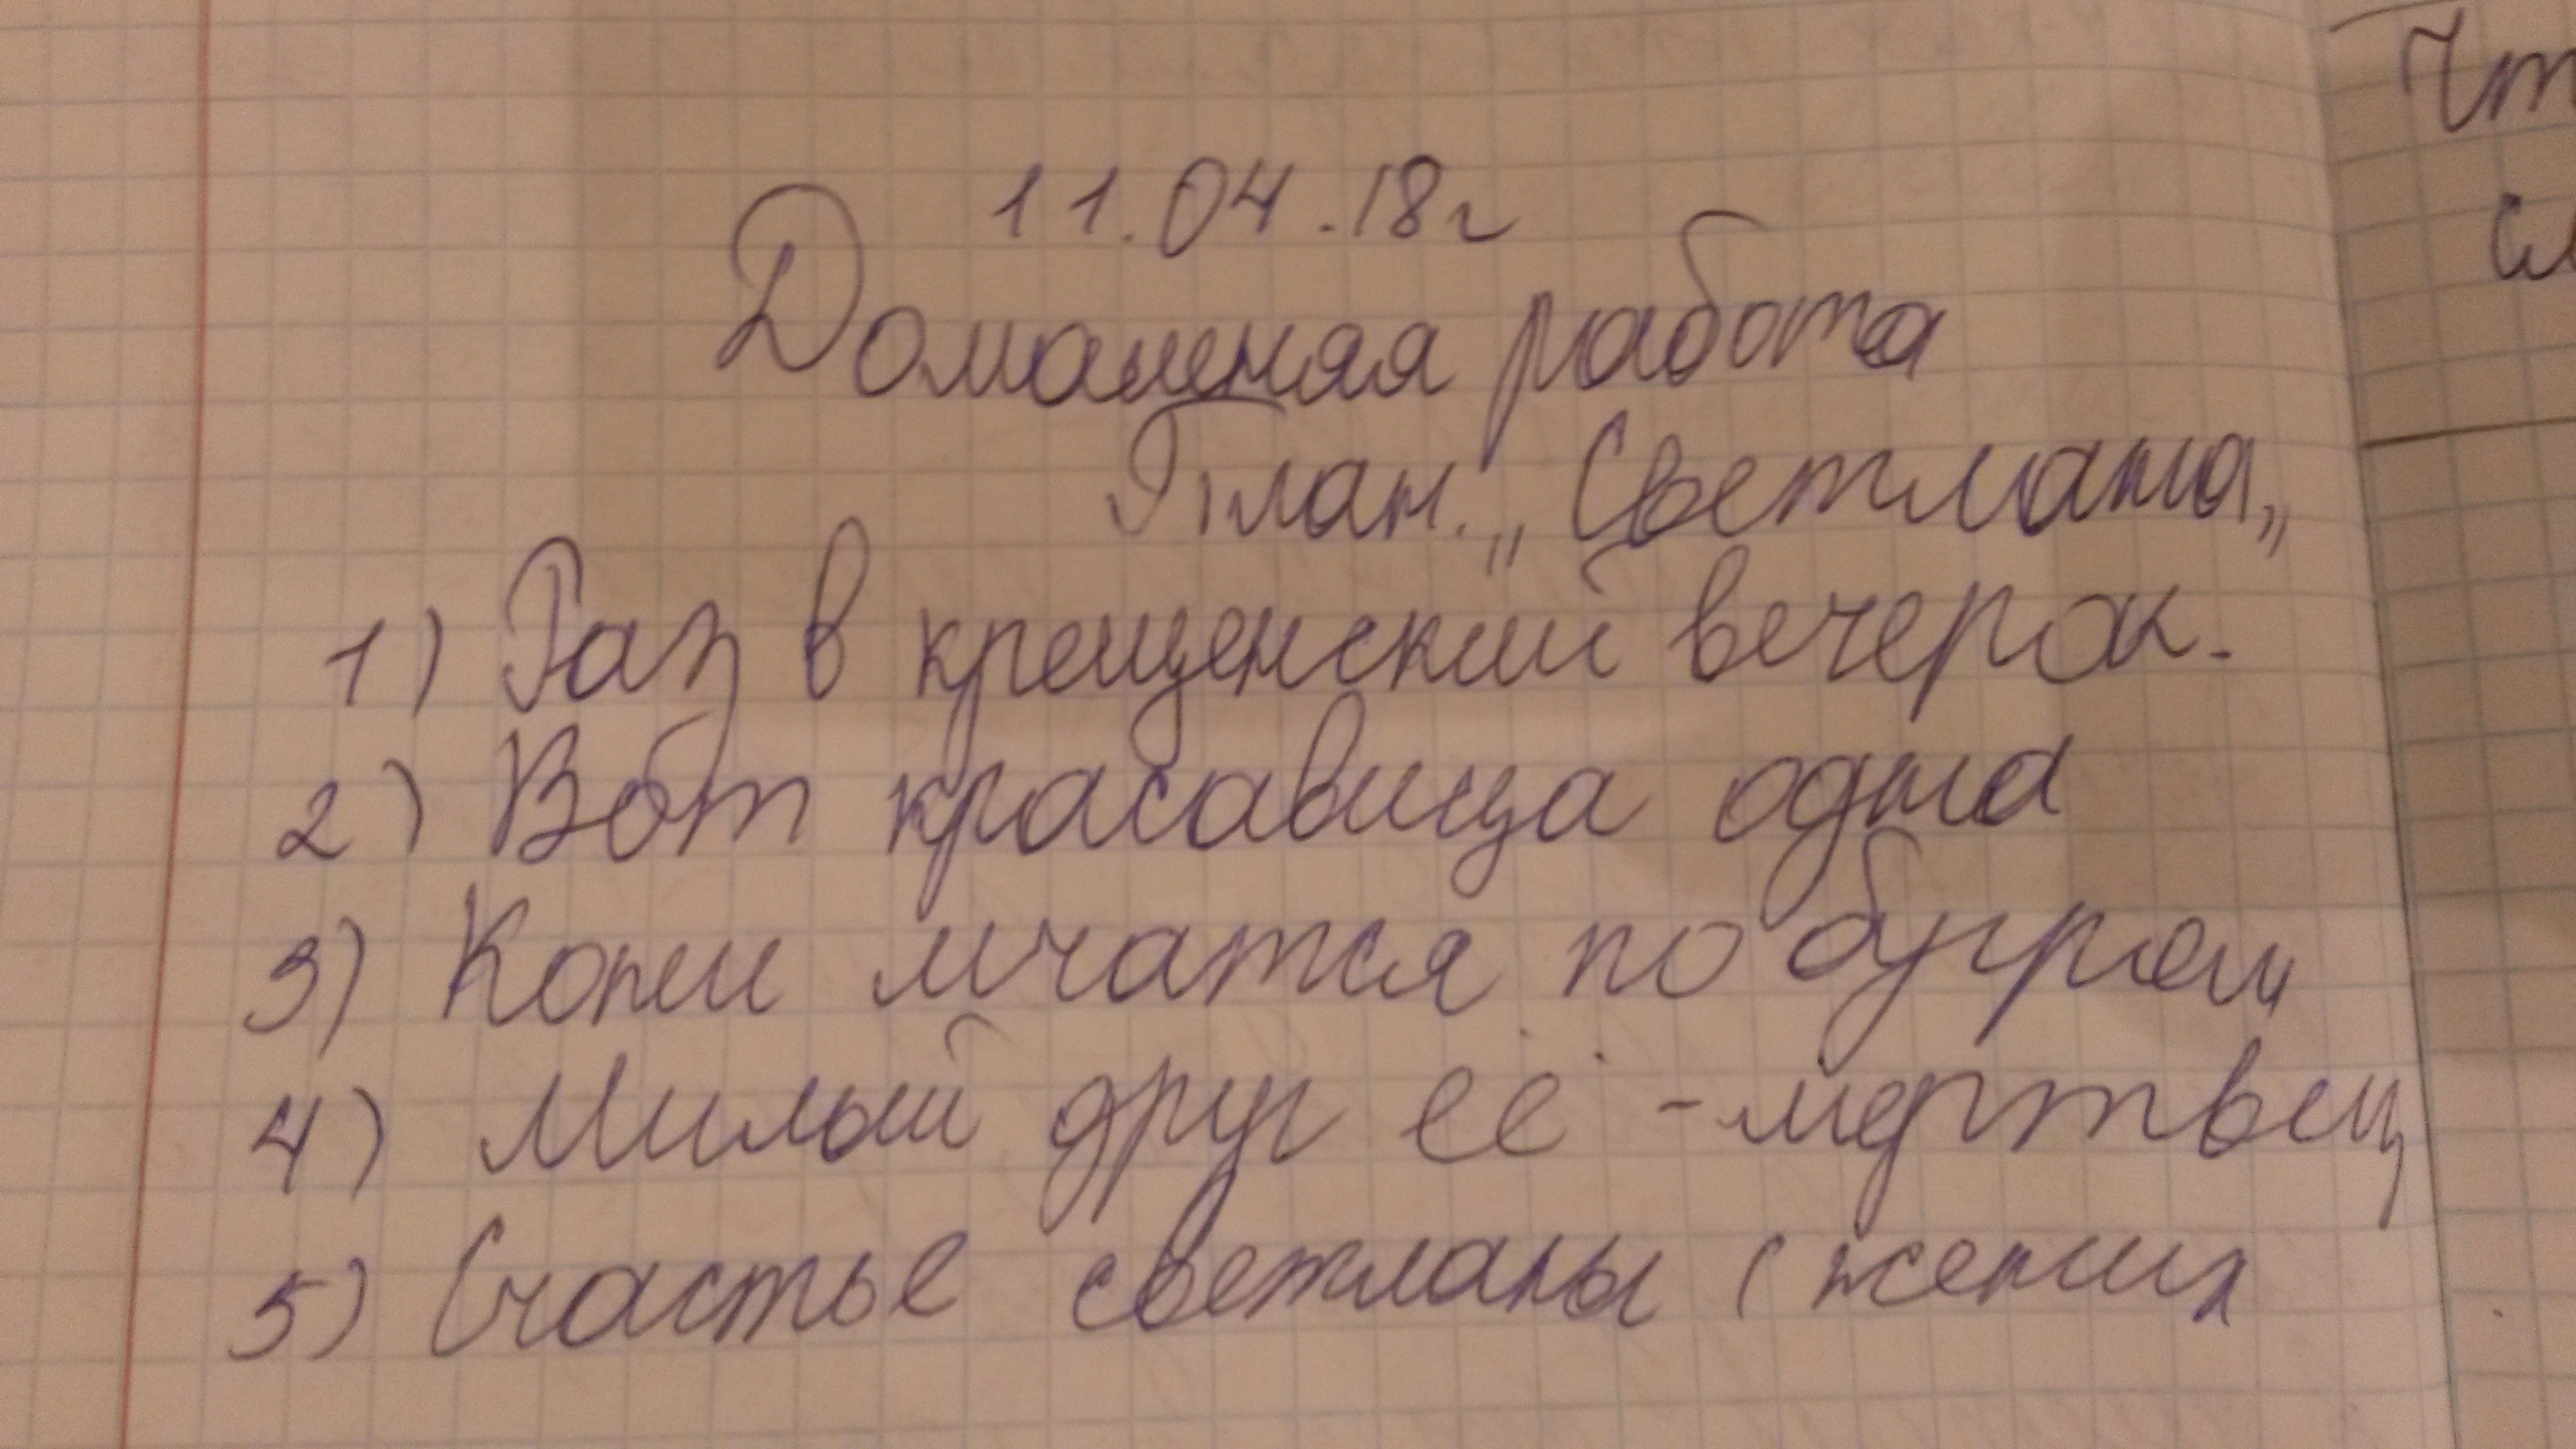 11.04.18г
Домашняя работа
План. „Светлана„
1) Раз в крещенский вечерок.
2) Вот красавица одна
3) Кони мчатся по буграм
4) Милый друг её - мертвец
5) Счастье светланы (жених